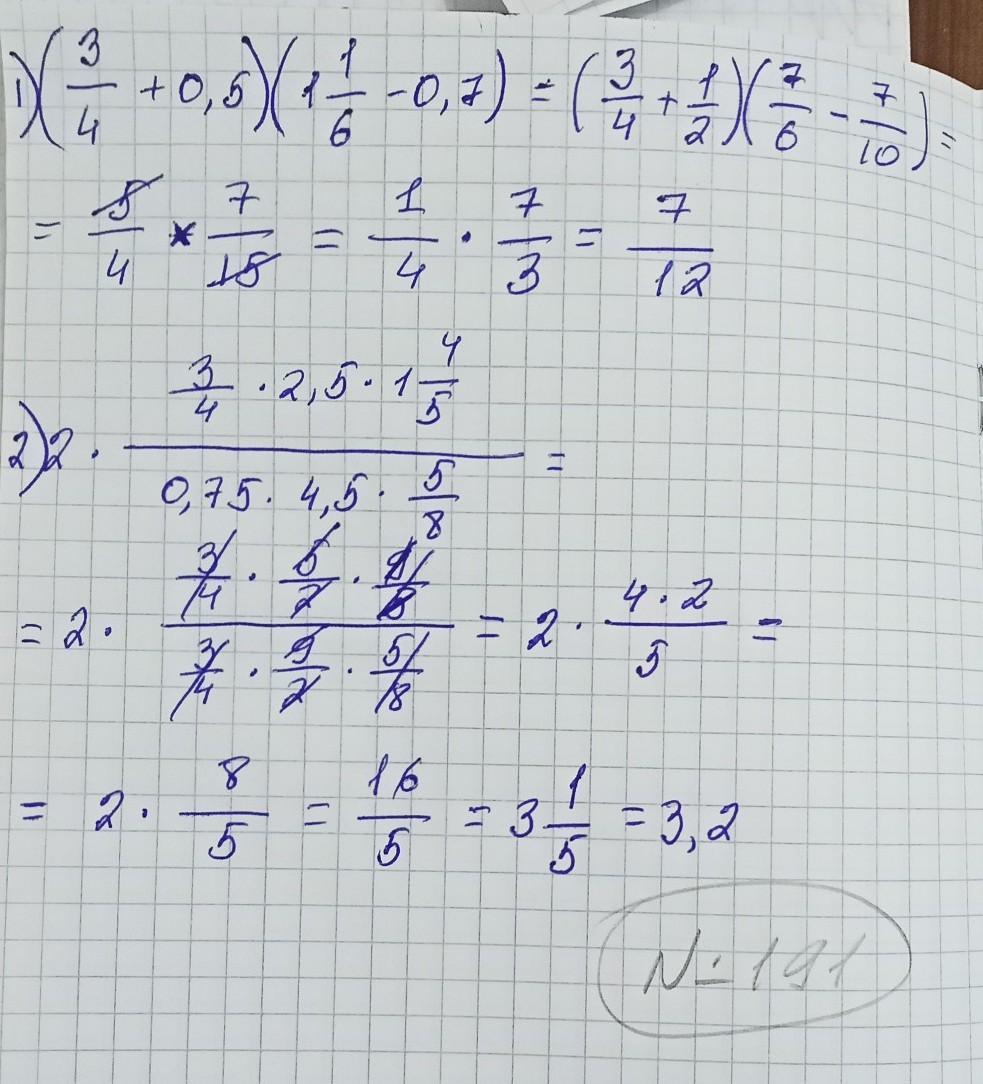 1) (3/4 + 0,5)(1 1/6 - 0,7) = (3/4 + 1/2)(7/6 - 7/10) =
= 5/4 * 7/15 = 1/4 · 7/3 = 7/12
2) 2 · (3/4 · 2,5 · 1 4/5)/(0,75 · 4,5 · 5/8) =
= 2 · (3/4 · 5/2 · 9/5)/(3/4 · 9/2 · 5/8) = 2 · (4 · 2)/5 =
= 2 · 8/5 = 16/5 = 3 1/5 = 3,2
№ 191